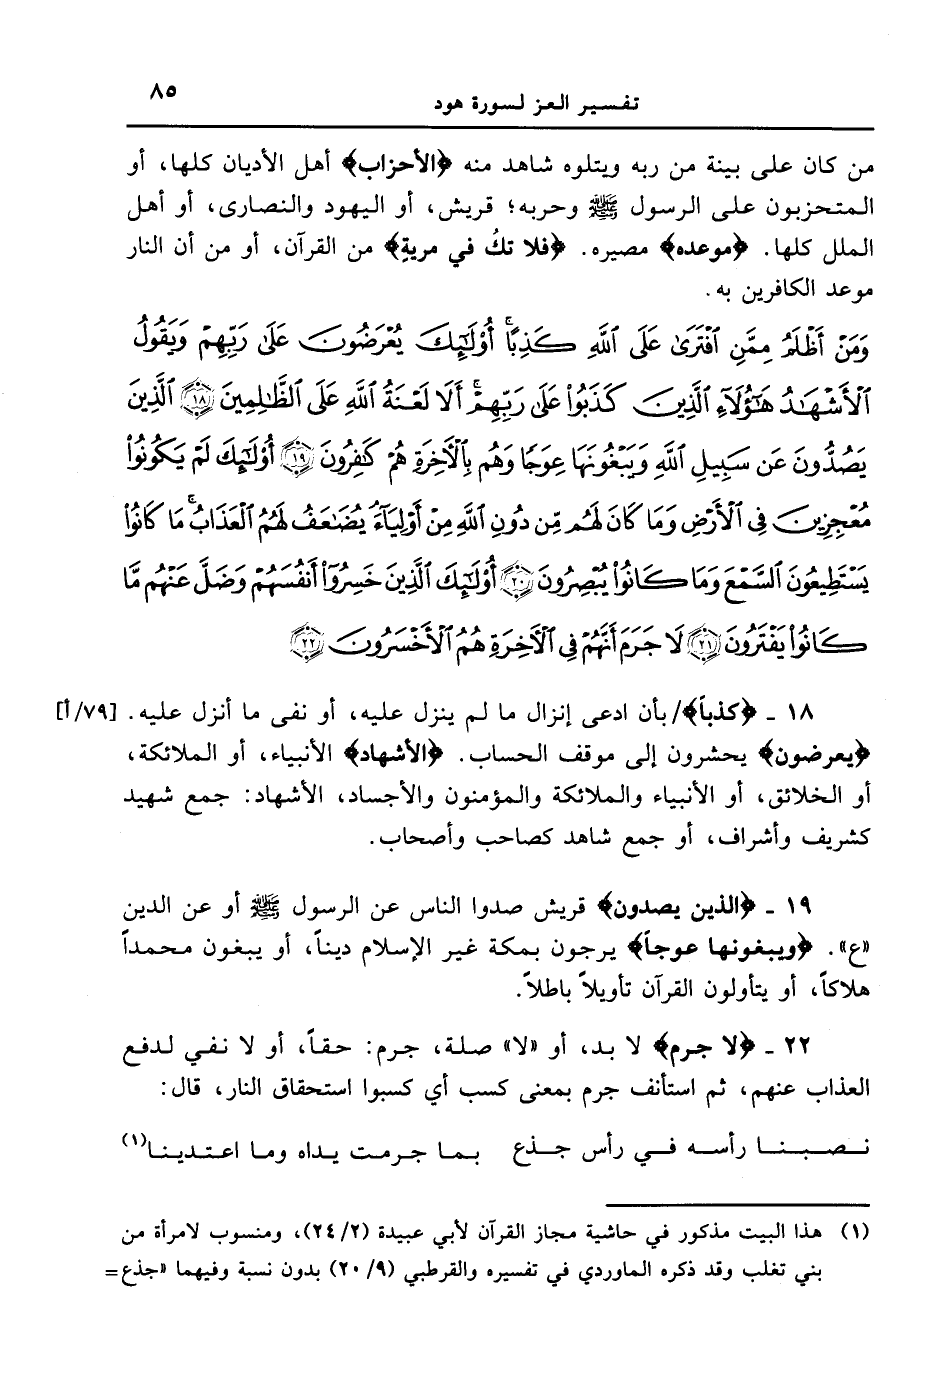 تفسير العز لسورة هود
٨٥
من كان على بينة من ربه ويتلوه شاهد منه ﴿الأحزاب﴾ أهل الأديان كلها، أو
المتحزبون على الرسول ﷺ وحربه؛ قريش، أو اليهود والنصارى، أو أهل
الملل كلها. ﴿موعده﴾ مصيره. ﴿فلا تكُ في مريةٍ﴾ من القرآن، أو من أن النار
موعد الكافرين به.
وَمَنْ أَظْلَمُ مِمَّنِ ٱفْتَرَىٰ عَلَى ٱللَّهِ كَذِبًا ۚ أُو۟لَٰٓئِكَ يُعْرَضُونَ عَلَىٰ رَبِّهِمْ وَيَقُولُ
ٱلْأَشْهَٰدُ هَٰٓؤُلَآءِ ٱلَّذِينَ كَذَبُوا۟ عَلَىٰ رَبِّهِمْ ۚ أَلَا لَعْنَةُ ٱللَّهِ عَلَى ٱلظَّٰلِمِينَ ١٨ ٱلَّذِينَ
يَصُدُّونَ عَن سَبِيلِ ٱللَّهِ وَيَبْغُونَهَا عِوَجًا وَهُم بِٱلْءَاخِرَةِ هُمْ كَٰفِرُونَ ١٩ أُو۟لَٰٓئِكَ لَمْ يَكُونُوا۟
مُعْجِزِينَ فِى ٱلْأَرْضِ وَمَا كَانَ لَهُم مِّن دُونِ ٱللَّهِ مِنْ أَوْلِيَآءَ ۘ يُضَٰعَفُ لَهُمُ ٱلْعَذَابُ ۚ مَا كَانُوا۟
يَسْتَطِيعُونَ ٱلسَّمْعَ وَمَا كَانُوا۟ يُبْصِرُونَ ٢٠ أُو۟لَٰٓئِكَ ٱلَّذِينَ خَسِرُوٓا۟ أَنفُسَهُمْ وَضَلَّ عَنْهُم مَّا
كَانُوا۟ يَفْتَرُونَ ٢١ لَا جَرَمَ أَنَّهُمْ فِى ٱلْءَاخِرَةِ هُمُ ٱلْأَخْسَرُونَ ٢٢
١٨ ـ ﴿كذباً﴾/ بأن ادعى إنزال ما لم ينزل عليه، أو نفى ما أنزل عليه. [٧٩/أ]
﴿يعرضون﴾ يحشرون إلى موقف الحساب. ﴿الأشهاد﴾ الأنبياء، أو الملائكة،
أو الخلائق، أو الأنبياء والملائكة والمؤمنون والأجساد، الأشهاد: جمع شهيد
كشريف وأشراف، أو جمع شاهد كصاحب وأصحاب.
١٩ ـ ﴿الذين يصدون﴾ قريش صدوا الناس عن الرسول ﷺ أو عن الدين
«ع». ﴿ويبغونها عوجاً﴾ يرجون بمكة غير الإسلام ديناً، أو يبغون محمداً
هلاكاً، أو يتأولون القرآن تأويلاً باطلاً.
٢٢ ـ ﴿لا جرم﴾ لا بد، أو «لا» صلة، جرم: حقاً، أو لا نفي لدفع
العذاب عنهم، ثم استأنف جرم بمعنى كسب أي كسبوا استحقاق النار، قال:
نصبنا رأسه في رأس جذع بما جرمت يداه وما اعتدينا(١)
(١) هذا البيت مذكور في حاشية مجاز القرآن لأبي عبيدة (٢٤/٢)، ومنسوب لامرأة من
بني تغلب وقد ذكره الماوردي في تفسيره والقرطبي (٢٠/٩) بدون نسبة وفيهما «جذع=